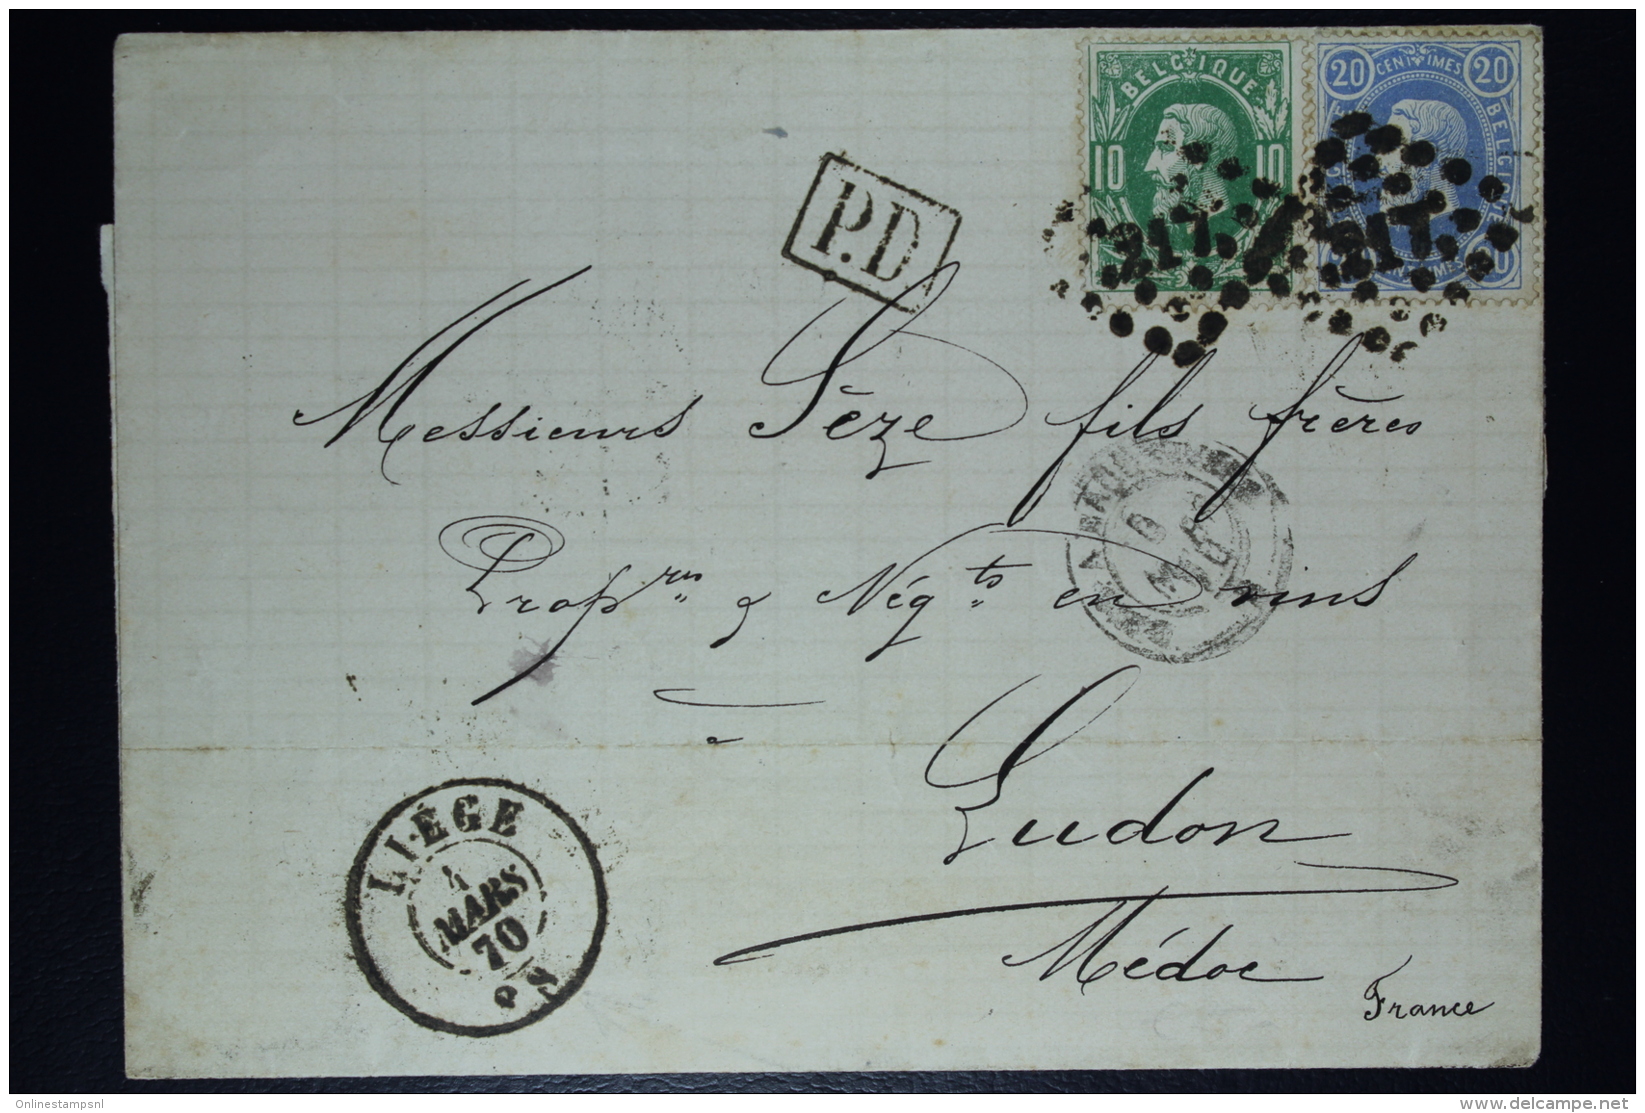 BELGIQUE
10 10
20 CENTIMES 20
BELGIQUE
P.D
217 217
Messieurs Sèze fils frères
Prop.res & Nég.ts en vins
Ludon
Médoc
France
LIÉGE
4
MARS
70
Onlinestampsnl
delcampe.net